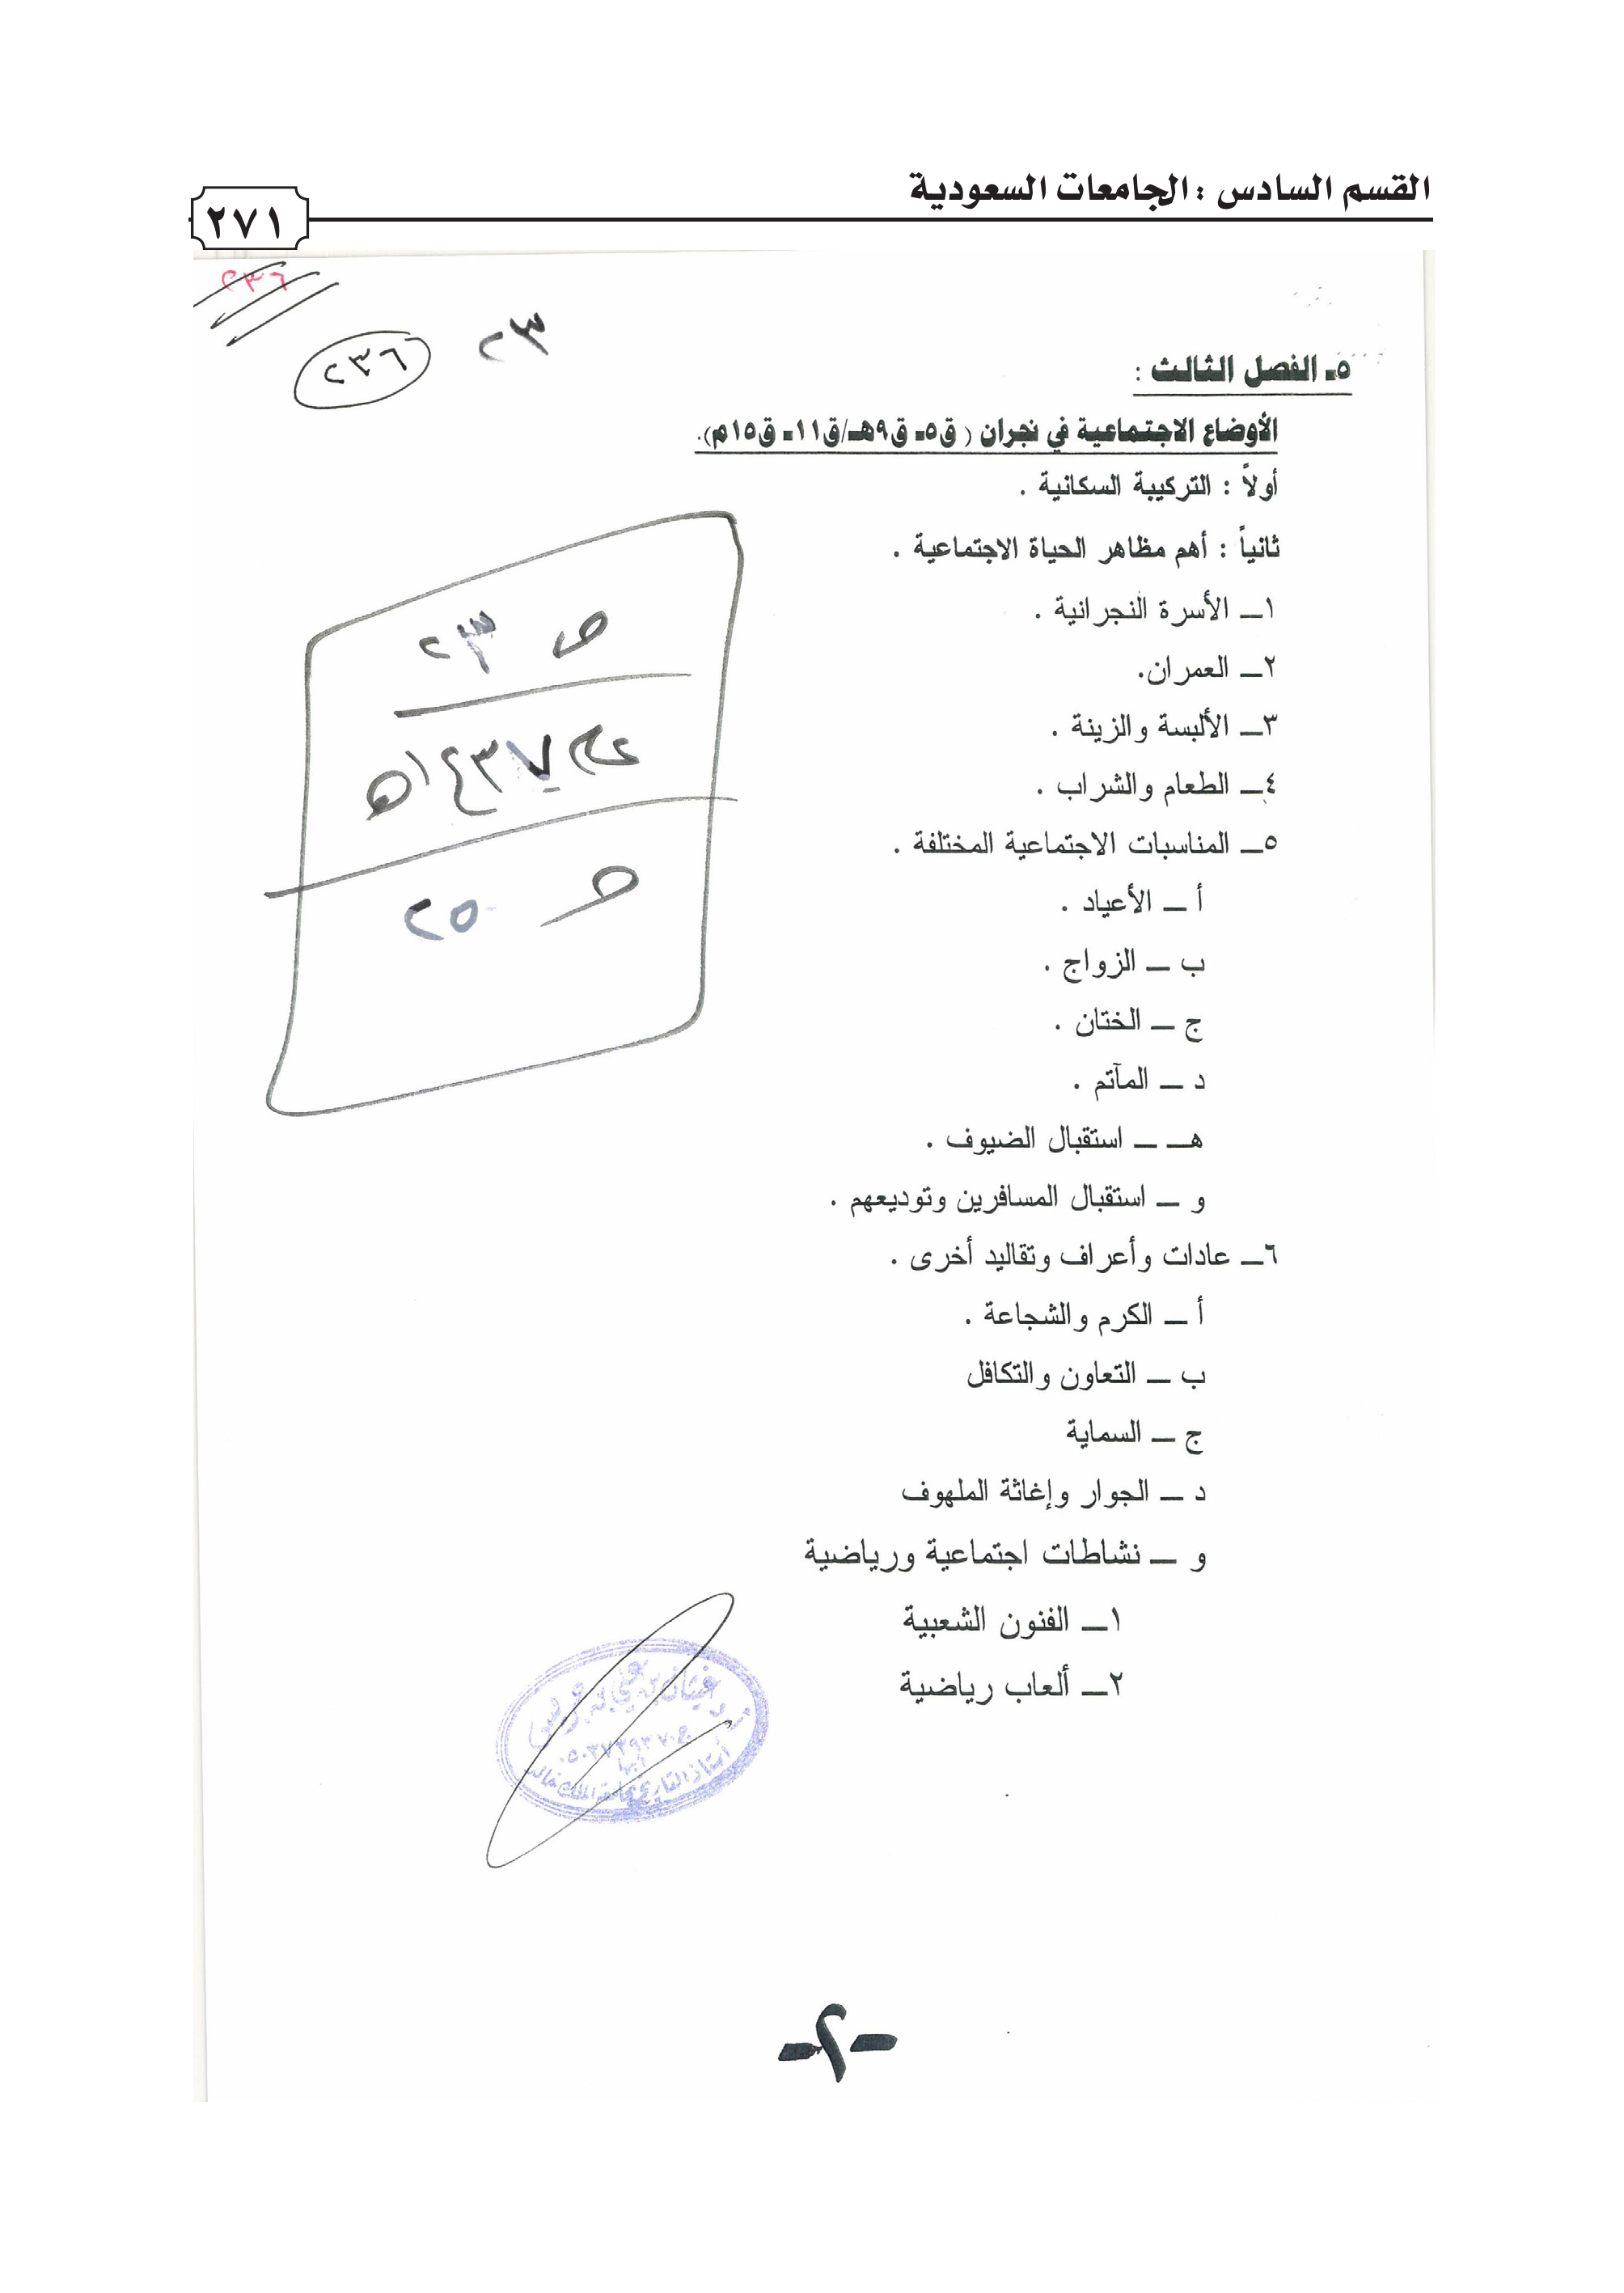 القسم السادس : الجامعات السعودية
٢٧١
٢٣٦
٢٣
٢٣٦
٥ـ الفصل الثالث :
الأوضاع الاجتماعية في نجران ( ق٥ـ ق٩هـ/ق١١ـ ق١٥م).
أولاً : التركيبة السكانية .
ثانياً : أهم مظاهر الحياة الاجتماعية .
١ــ الأسرة النجرانية .
٢ــ العمران.
٣ــ الألبسة والزينة .
٤ــ الطعام والشراب .
٥ــ المناسبات الاجتماعية المختلفة .
أ ــ الأعياد .
ب ــ الزواج .
ج ــ الختان .
د ــ المآتم .
هــ ــ استقبال الضيوف .
و ــ استقبال المسافرين وتوديعهم .
٦ــ عادات وأعراف وتقاليد أخرى .
أ ــ الكرم والشجاعة .
ب ــ التعاون والتكافل
ج ــ السماية
د ــ الجوار وإغاثة الملهوف
و ــ نشاطات اجتماعية ورياضية
١ــ الفنون الشعبية
٢ــ ألعاب رياضية
ص ٢٣
عام ١٤٣٧هـ
ص ٢٥
غيثان بن علي بن جريس
ج٠٥٠٣٧٣٩٣٧٠
أبها
أستاذ التاريخ بجامعة الملك خالد
-٢-